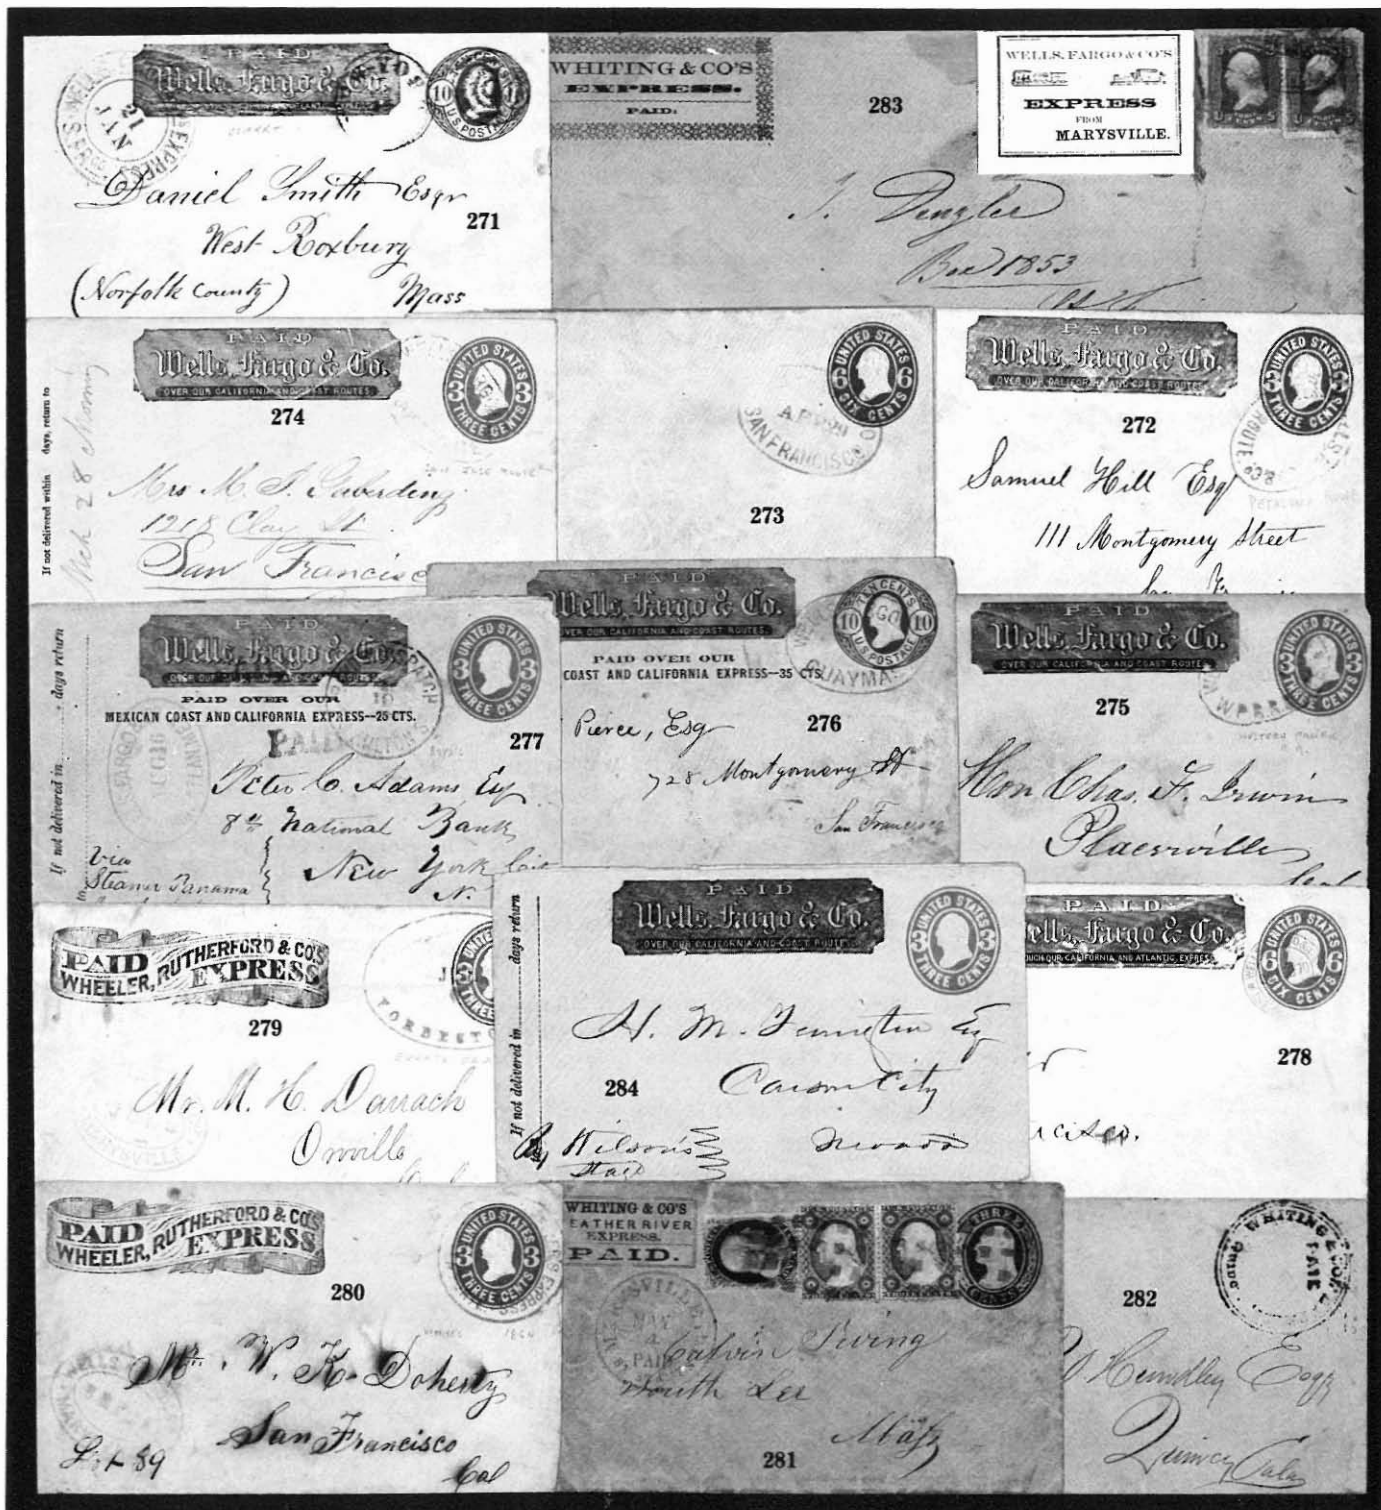 PAID
Wells, Fargo & Co.
21
JAN
EXPRESS
10
U.S. POSTAGE
Daniel Smith Esqr
271
West Roxbury
(Norfolk County) Mass
WHITING & CO'S
EXPRESS.
PAID.
283
WELLS, FARGO & CO'S
EXPRESS
FROM
MARYSVILLE.
Box 1853
If not delivered within days, return to
Mch 28
PAID
Wells, Fargo & Co.
OVER OUR CALIFORNIA AND COAST ROUTES.
UNITED STATES
3 3
THREE CENTS
274
Mrs M. S.
1218 Clay St.
San Francisco
UNITED STATES
6 6
SIX CENTS
SAN FRANCISCO
273
PAID
Wells, Fargo & Co.
OVER OUR CALIFORNIA AND COAST ROUTES.
UNITED STATES
THREE CENTS
272
Samuel Hill Esq
111 Montgomery Street
If not delivered in days return
to
PAID
Wells, Fargo & Co.
OVER OUR CALIFORNIA AND COAST ROUTES.
PAID OVER OUR
MEXICAN COAST AND CALIFORNIA EXPRESS—25 CTS.
UNITED STATES
3 3
THREE CENTS
PAID
277
Peter C. Adams Esq
8th National Bank
New York City
N.
Via
Steamer Panama
PAID
Wells, Fargo & Co.
OVER OUR CALIFORNIA AND COAST ROUTES.
PAID OVER OUR
COAST AND CALIFORNIA EXPRESS—35 CTS.
TEN CENTS
10 10
U.S. POSTAGE
GUAYMAS
276
Pierce, Esq
728 Montgomery St
San Francisco
PAID
Wells, Fargo & Co.
OVER OUR CALIFORNIA AND COAST ROUTES.
UNITED STATES
3 3
THREE CENTS
275
Hon Chas. F. Irwin
Placerville
Cal
PAID
WHEELER, RUTHERFORD & CO'S
EXPRESS
279
FORBESTO
Mr. M. H. Darrach
Oroville
If not delivered in days return
PAID
Wells, Fargo & Co.
OVER OUR CALIFORNIA AND COAST ROUTES.
UNITED STATES
3 3
THREE CENTS
284
Carson City
Nevada
By Wilson's
Stage
PAID
ells, Fargo & Co.
OUGH OUR CALIFORNIA AND ATLANTIC EXPRESS
UNITED STATES
6 6
SIX CENTS
278
rcisco.
PAID
WHEELER, RUTHERFORD & CO'S
EXPRESS
UNITED STATES
3 3
THREE CENTS
280
Mr. W. K. Doherty
San Francisco
Cal
WHITING & CO'S
FEATHER RIVER
EXPRESS.
PAID.
THREE
CENTS
Calvin
South Lee
Mass
281
WHITING & CO'S
282
Hundley Esqr
Quincy Cala